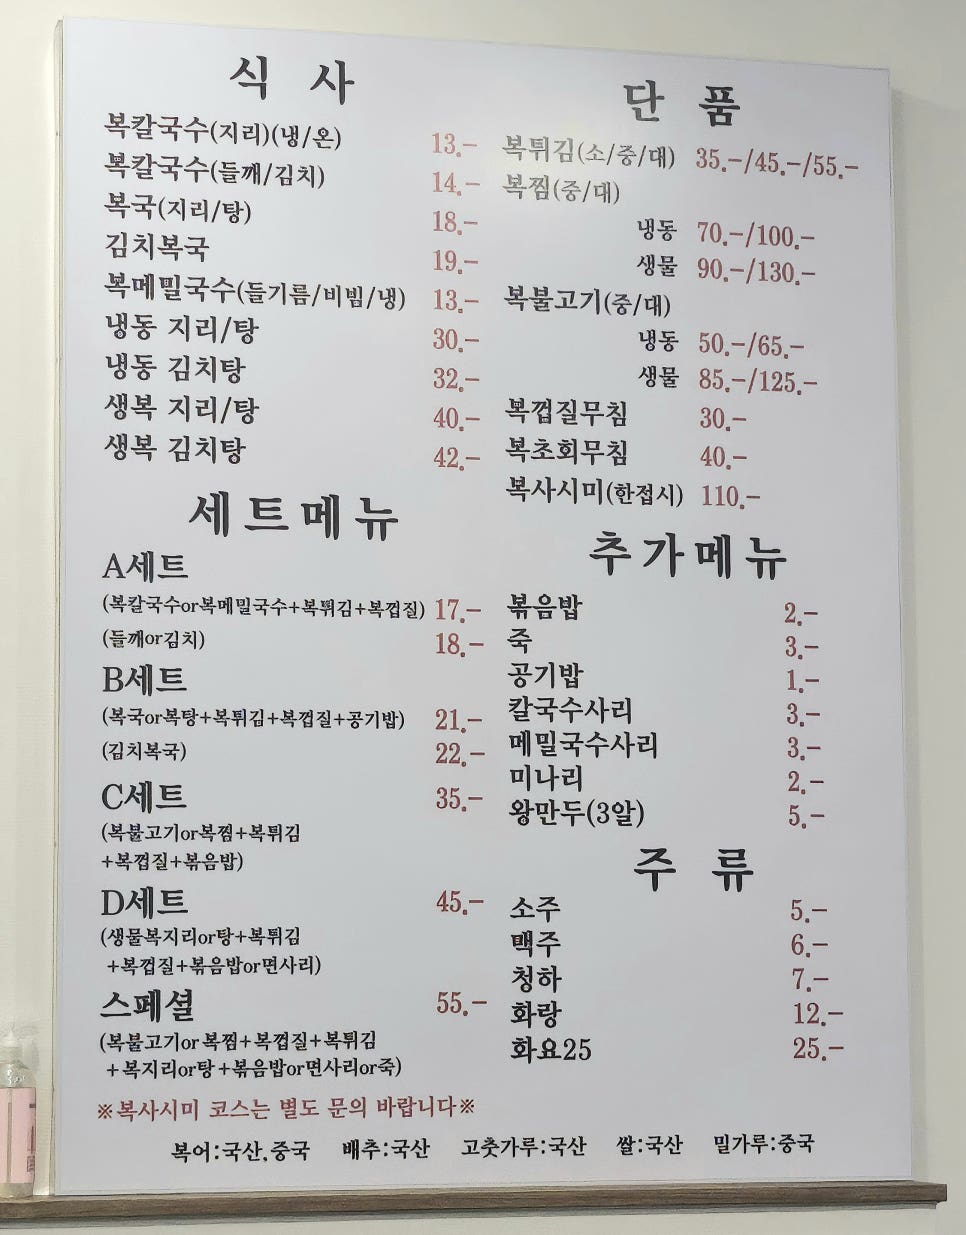 식 사
복칼국수(지리)(냉/온) 13.-
복칼국수(들깨/김치) 14.-
복국(지리/탕) 18.-
김치복국 19.-
복메밀국수(들기름/비빔/냉) 13.-
냉동 지리/탕 30.-
냉동 김치탕 32.-
생복 지리/탕 40.-
생복 김치탕 42.-
세트메뉴
A세트
(복칼국수or복메밀국수+복튀김+복껍질) 17.-
(들깨or김치) 18.-
B세트
(복국or복탕+복튀김+복껍질+공기밥) 21.-
(김치복국) 22.-
C세트 35.-
(복불고기or복찜+복튀김
+복껍질+볶음밥)
D세트 45.-
(생물복지리or탕+복튀김
+복껍질+볶음밥or면사리)
스페셜 55.-
(복불고기or복찜+복껍질+복튀김
+복지리or탕+볶음밥or면사리or죽)
※복사시미 코스는 별도 문의 바랍니다※
단 품
복튀김(소/중/대) 35.-/45.-/55.-
복찜(중/대)
냉동 70.-/100.-
생물 90.-/130.-
복불고기(중/대)
냉동 50.-/65.-
생물 85.-/125.-
복껍질무침 30.-
복초회무침 40.-
복사시미(한접시) 110.-
추가메뉴
볶음밥 2.-
죽 3.-
공기밥 1.-
칼국수사리 3.-
메밀국수사리 3.-
미나리 2.-
왕만두(3알) 5.-
주 류
소주 5.-
맥주 6.-
청하 7.-
화랑 12.-
화요25 25.-
복어:국산,중국 배추:국산 고춧가루:국산 쌀:국산 밀가루:중국